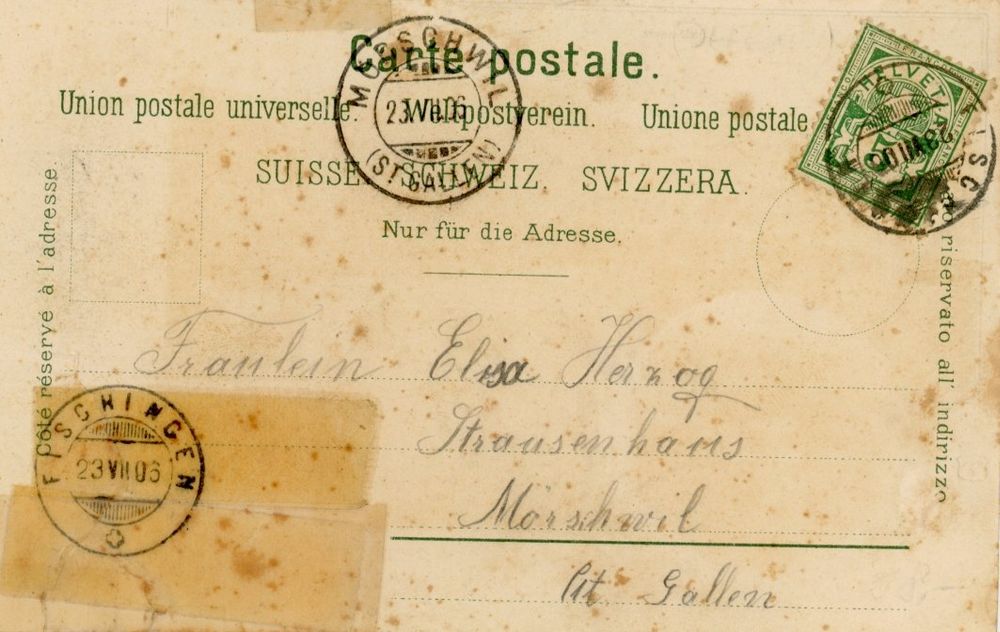 Carte postale.
MÖRSCHWIL
23.VII.06
(ST.GALLEN)
Union postale universelle. Weltpostverein. Unione postale
HELVETIA
23 VII 06
SUISSE. SCHWEIZ. SVIZZERA.
Nur für die Adresse.
Côté réservé à l'adresse.
riservato all' indirizzo
Fräulein Elisa Herzog
Strausenhaus
Mörschwil
St. Gallen
FISCHINGEN
23 VII 06